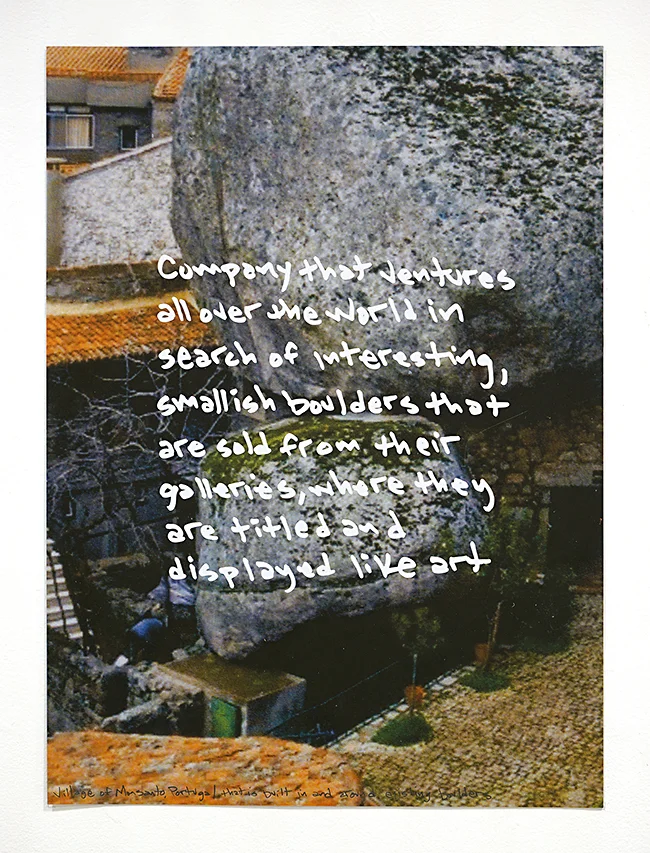 Company that ventures
all over the world in
search of interesting,
smallish boulders that
are sold from their
galleries, where they
are titled and
displayed like art
Village of Monsanto, Portugal that is built in and around existing boulders